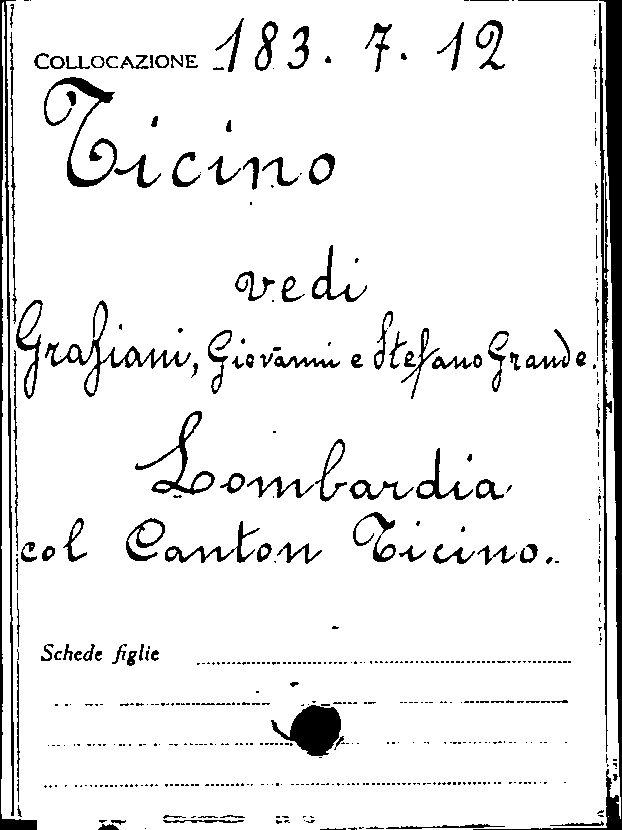 COLLOCAZIONE 183. 7. 12
Ticino
vedi
Graziani, Giovanni e Stefano Grande.
Lombardia
col Canton Ticino.
Schede figlie